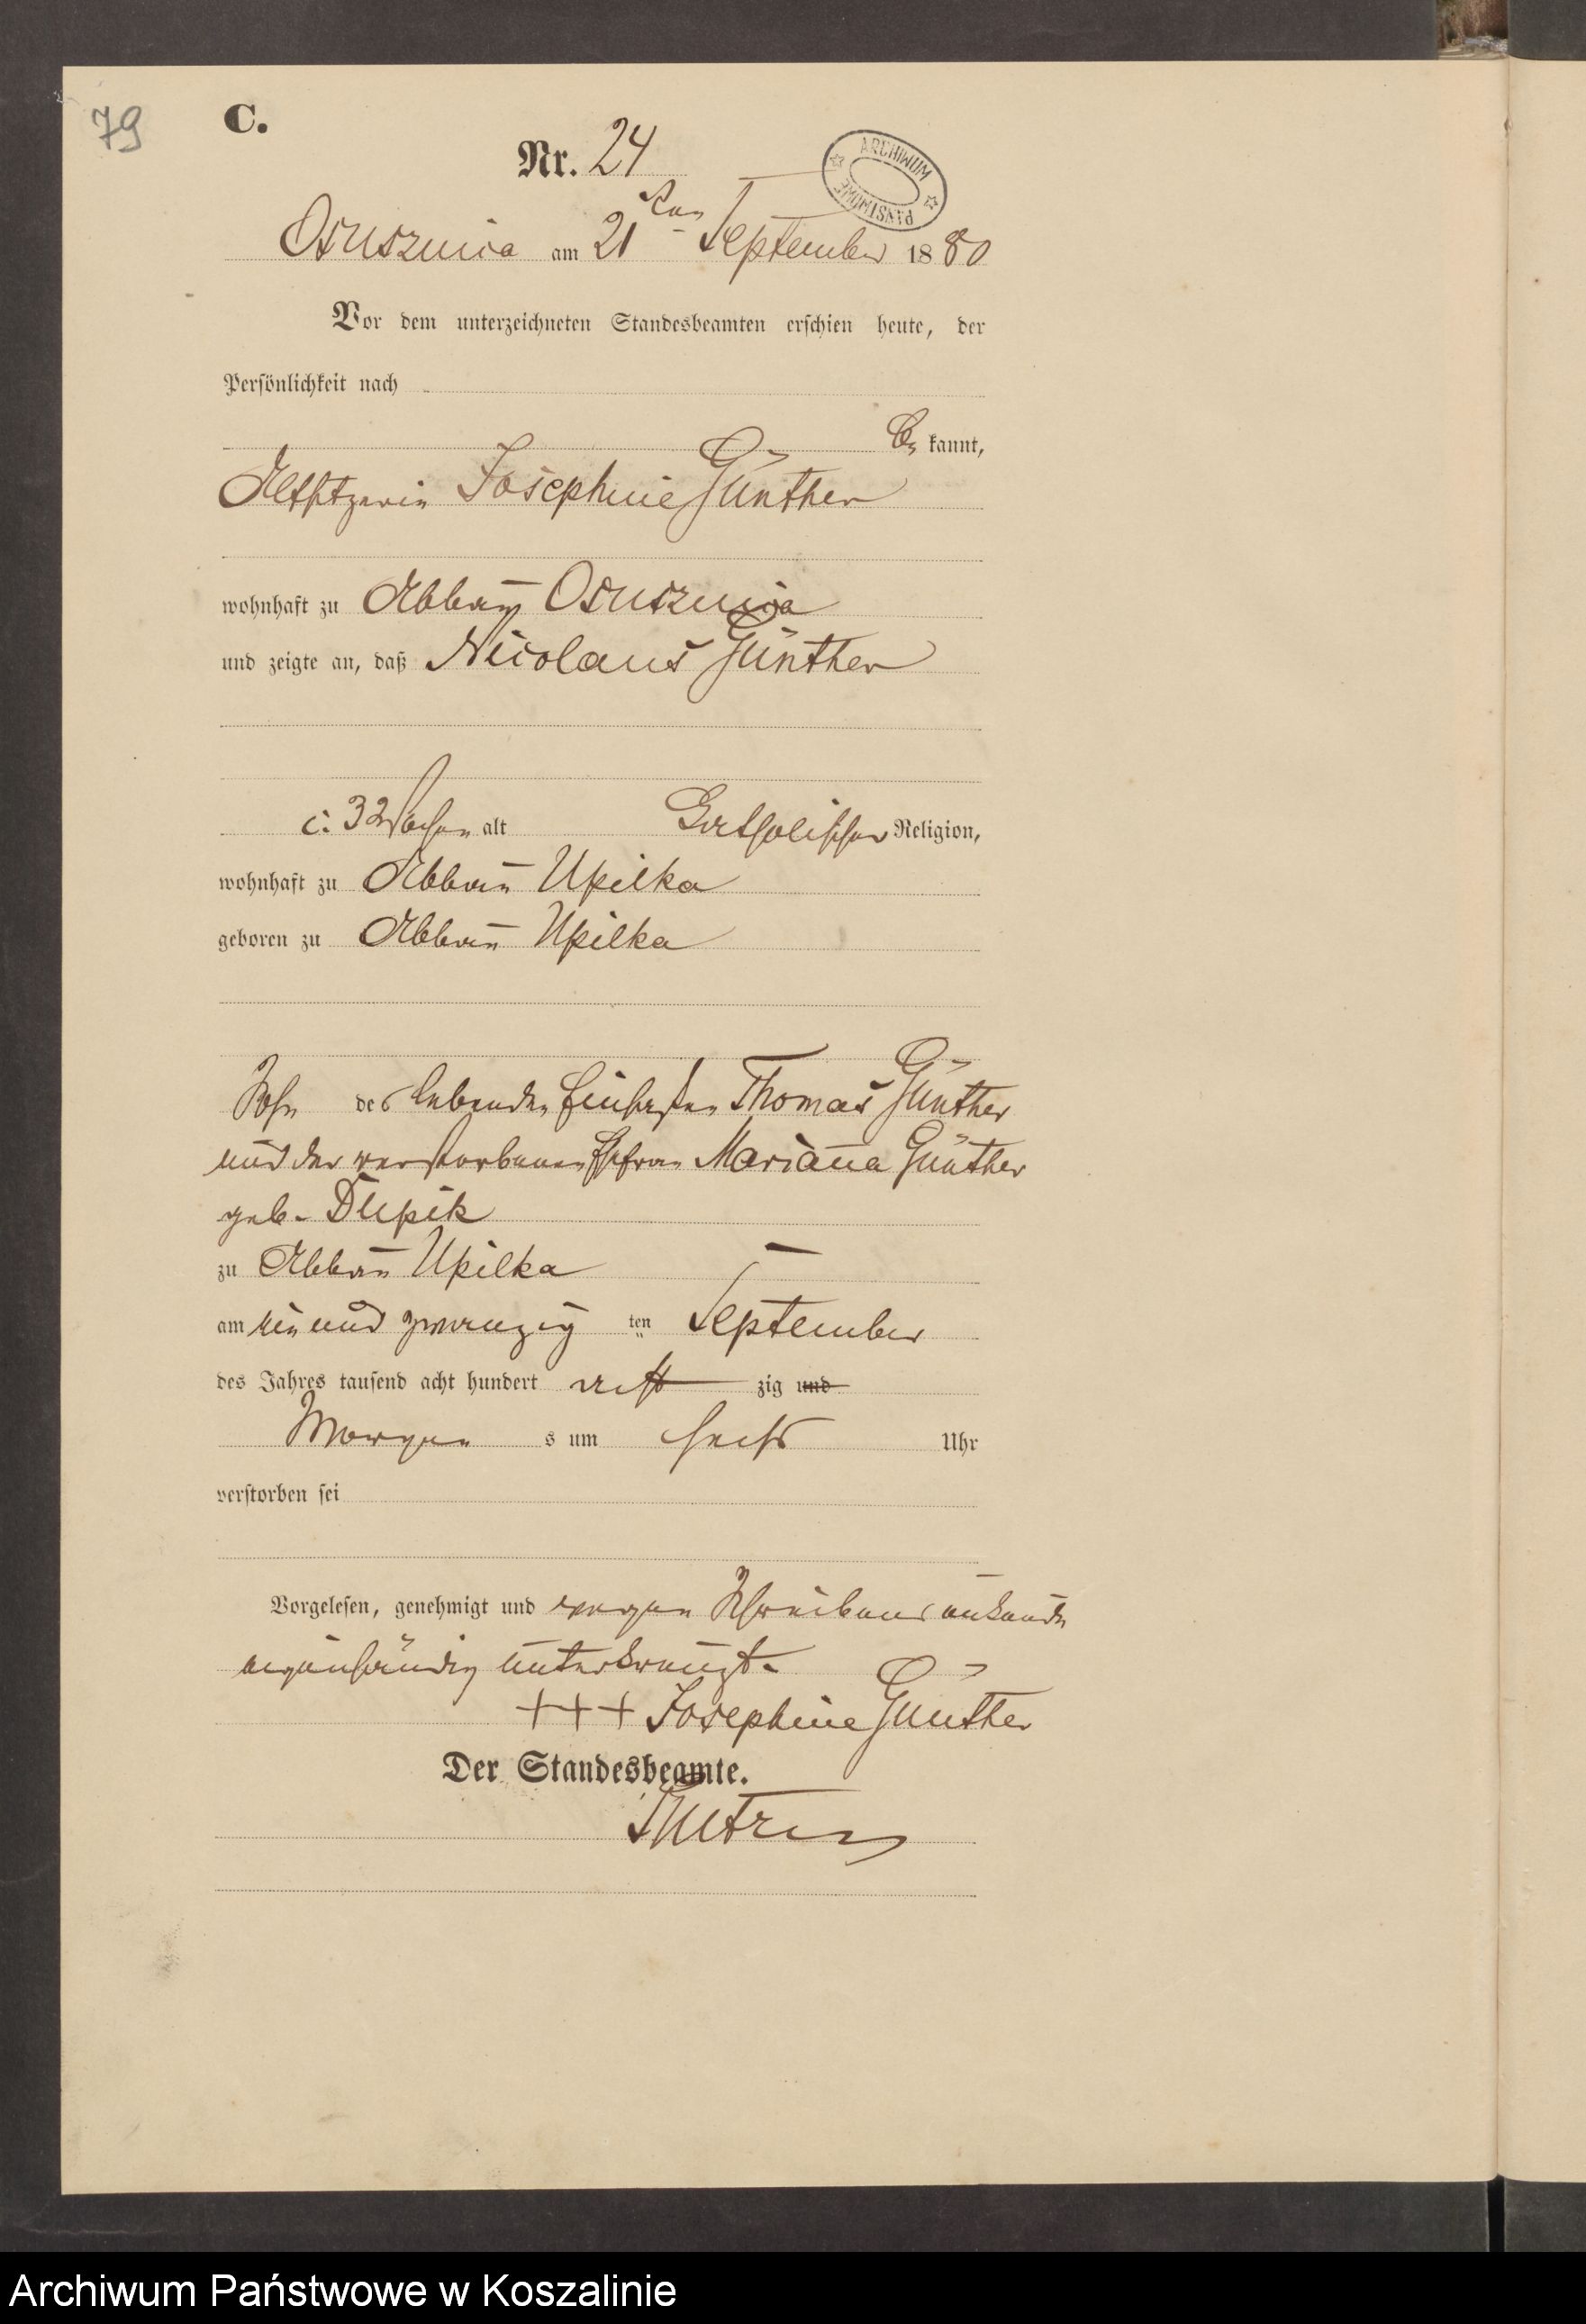 79
C.
Nr. 24
ARCHIWUM PAŃSTWOWE
Ossusznica am 21ten September 1880
Vor dem unterzeichneten Standesbeamten erschien heute, der
Persönlichkeit nach
be kannt,
Altsitzerin Josephine Günther
wohnhaft zu Abbau Ossusznica
und zeigte an, daß Nicolaus Günther
c. 3 Wochen alt katholischer Religion,
wohnhaft zu Abbau Upilka
geboren zu Abbau Upilka
Sohn des lebenden Thomas Günther
und der verstorbenen Ehefrau Marianna Günther
geb.
zu Abbau Upilka
am ein und zwanzig ten September
des Jahres tausend acht hundert acht zig und
Morgen s um sechs Uhr
verstorben sei
Vorgelesen, genehmigt und wegen Schreibensunkunde
eigenhändig unterkreuzt.
+++ Josephine Günther
Der Standesbeamte.
Archiwum Państwowe w Koszalinie